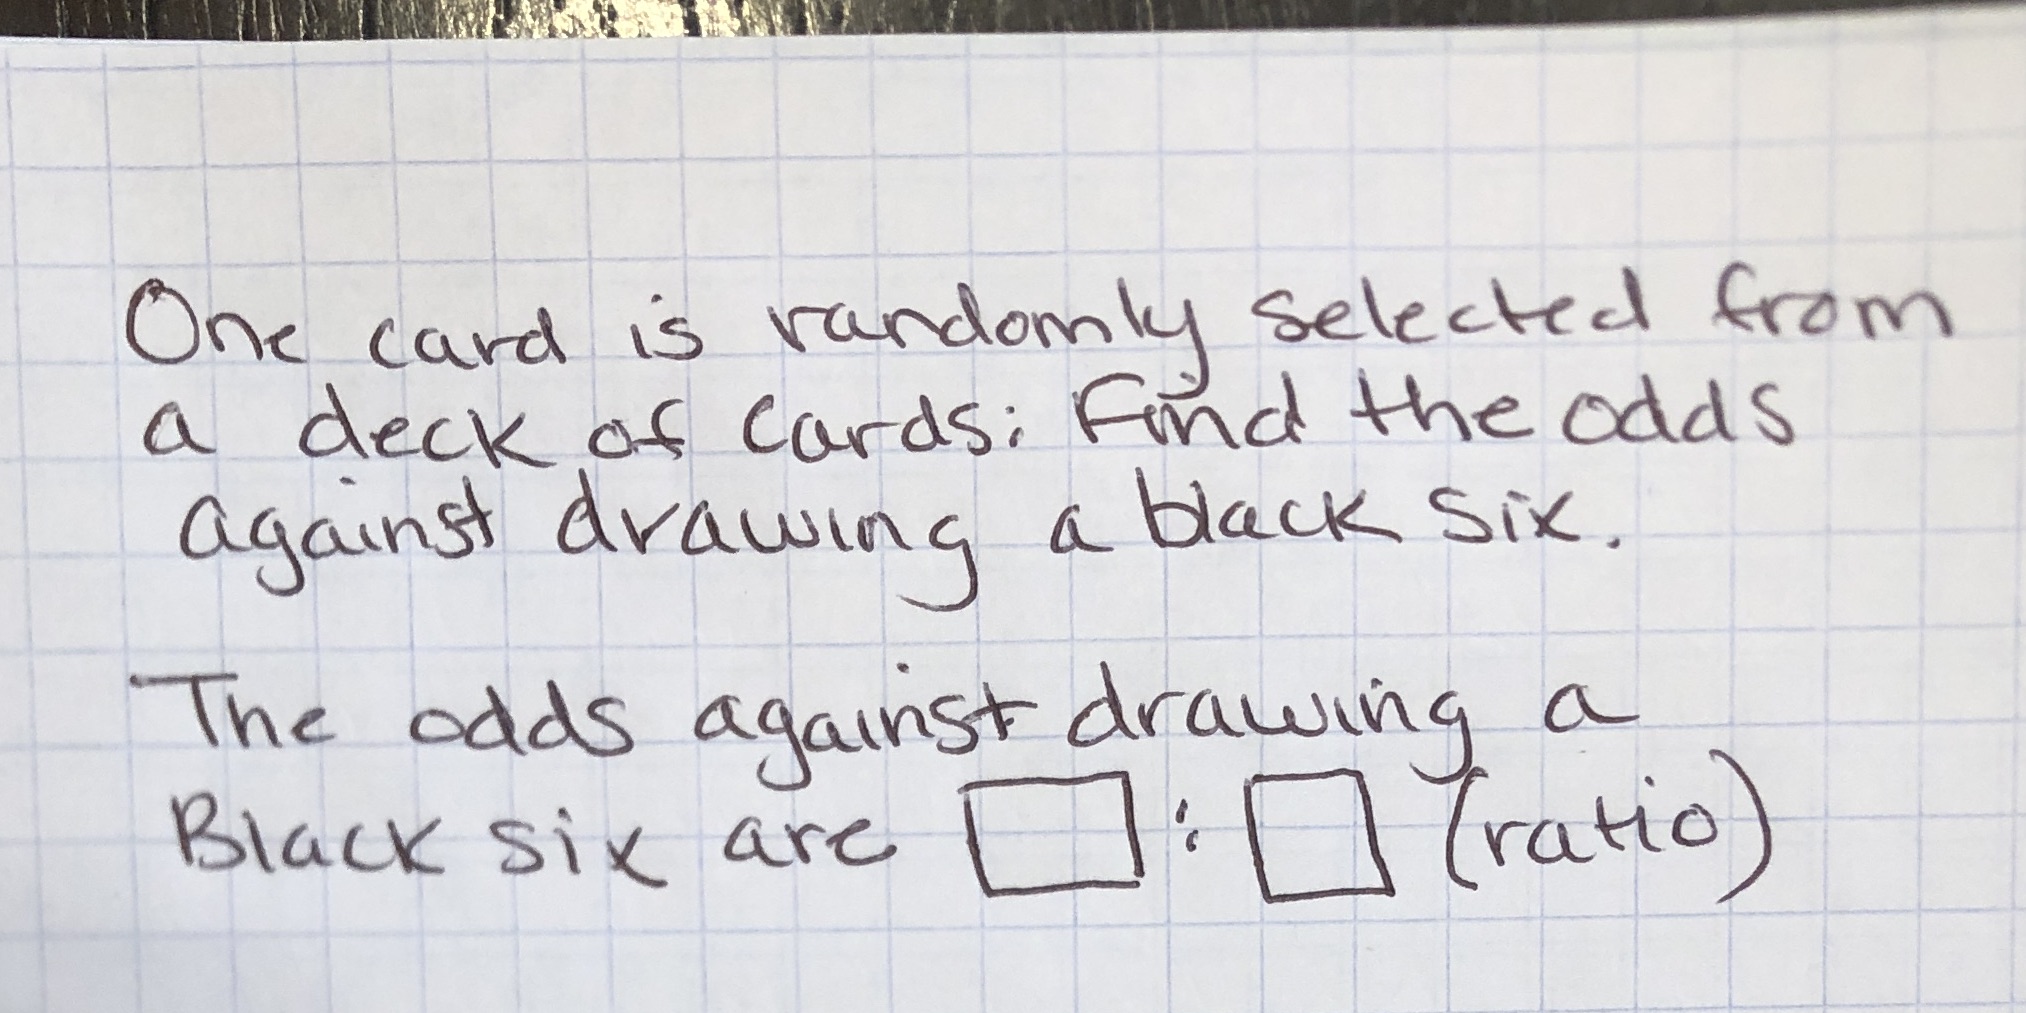 One card is randomly selected from
a deck of cards: Find the odds
against drawing a black six.
The odds against drawing a
Black six are □ : □ (ratio)